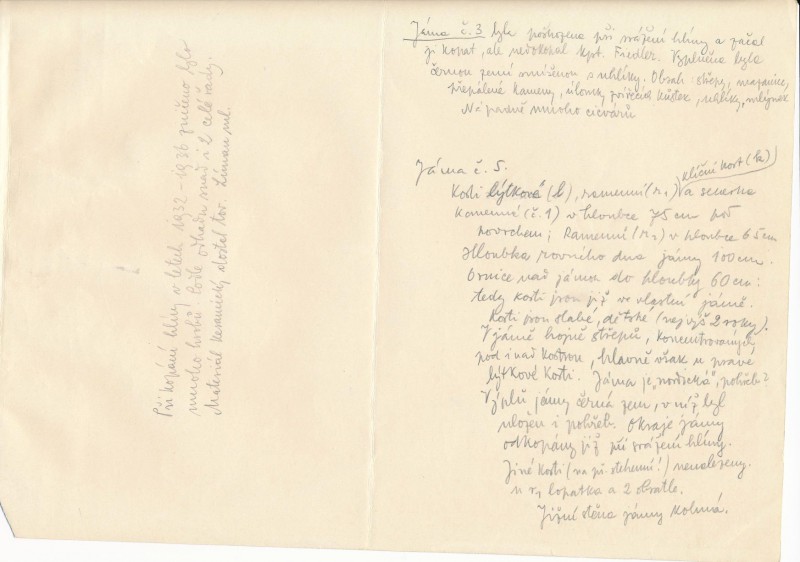 Jáma č. 3 byla poškozena při srážení hlíny a začal
ji kopat, ale nedokopal kpt. Fiedler. Vyplněna byla
černou zemí smíšenou s uhlíky. Obsah: střepy, mazanice,
přepálené kameny, úlomky zvířecích kůstek, uhlíky, mlýnek
Nápadně mnoho cicvárů
Jáma č. 5.
klíční kost (k)
Kosti lýtková (l), ramenní (r1) a sekerka
kamenná (č. 1) v hloubce 75 cm pod
povrchem; Ramenní (r2) v hloubce 65 cm
Hloubka rovného dna jámy 100 cm.
Ornice nad jámou do hloubky 60 cm:
tedy kosti jsou již ve vlastní jámě.
Kosti jsou slabé, dětské (nejvýš 2 roky).
V jámě hojně střepů, koncentrovaných
pod i nad kostrou, hlavně však u pravé
lýtkové kosti. Jáma je „nordická", pohřeb?
Výplň jámy černá zem, v níž byl
uložen i pohřeb. Okraje jámy
odkopány již při srážení hlíny.
Jiné kosti (na př. stehenní!) nenalezeny.
u r1 lopatka a 2 obratle.
Jižní stěna jámy kolmá.
Při kopání hlíny v letech 1932-1936 zničeno bylo
mnoho hrobů! Podle odhadu snad i 2 celé řady.
Materiál keramický dostal tov. Liman ml.